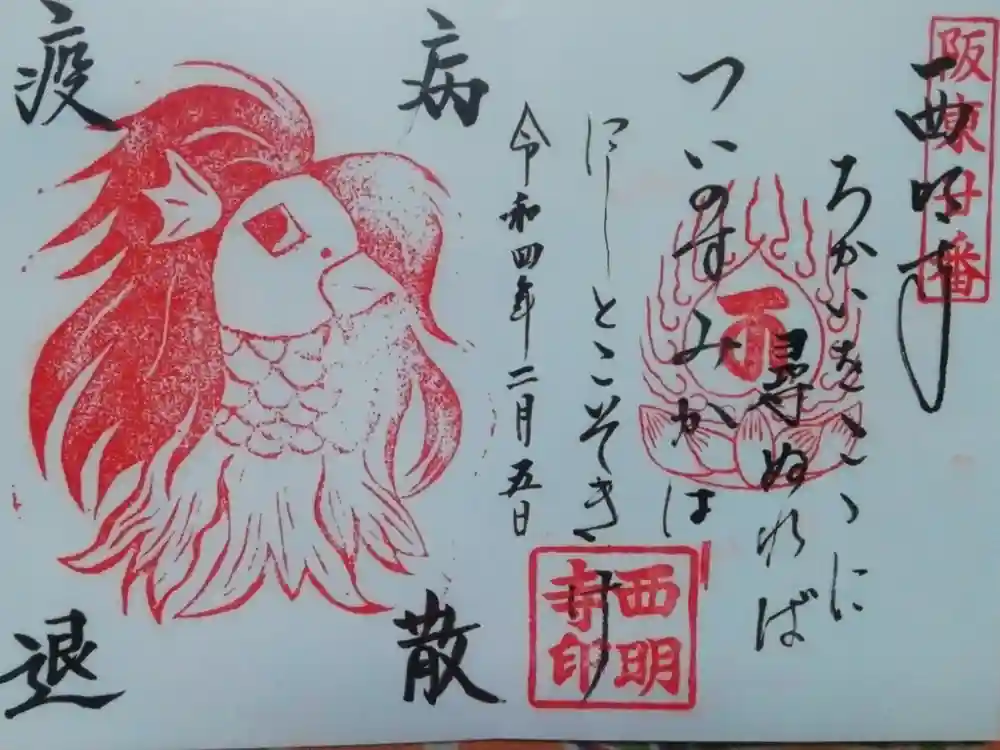 阪東廿番
西明寺
ちかいをこゝに
尋ぬれば
ついのすみかは
にしとこそきけ
西明
寺印
令和四年二月五日
疫病
退散